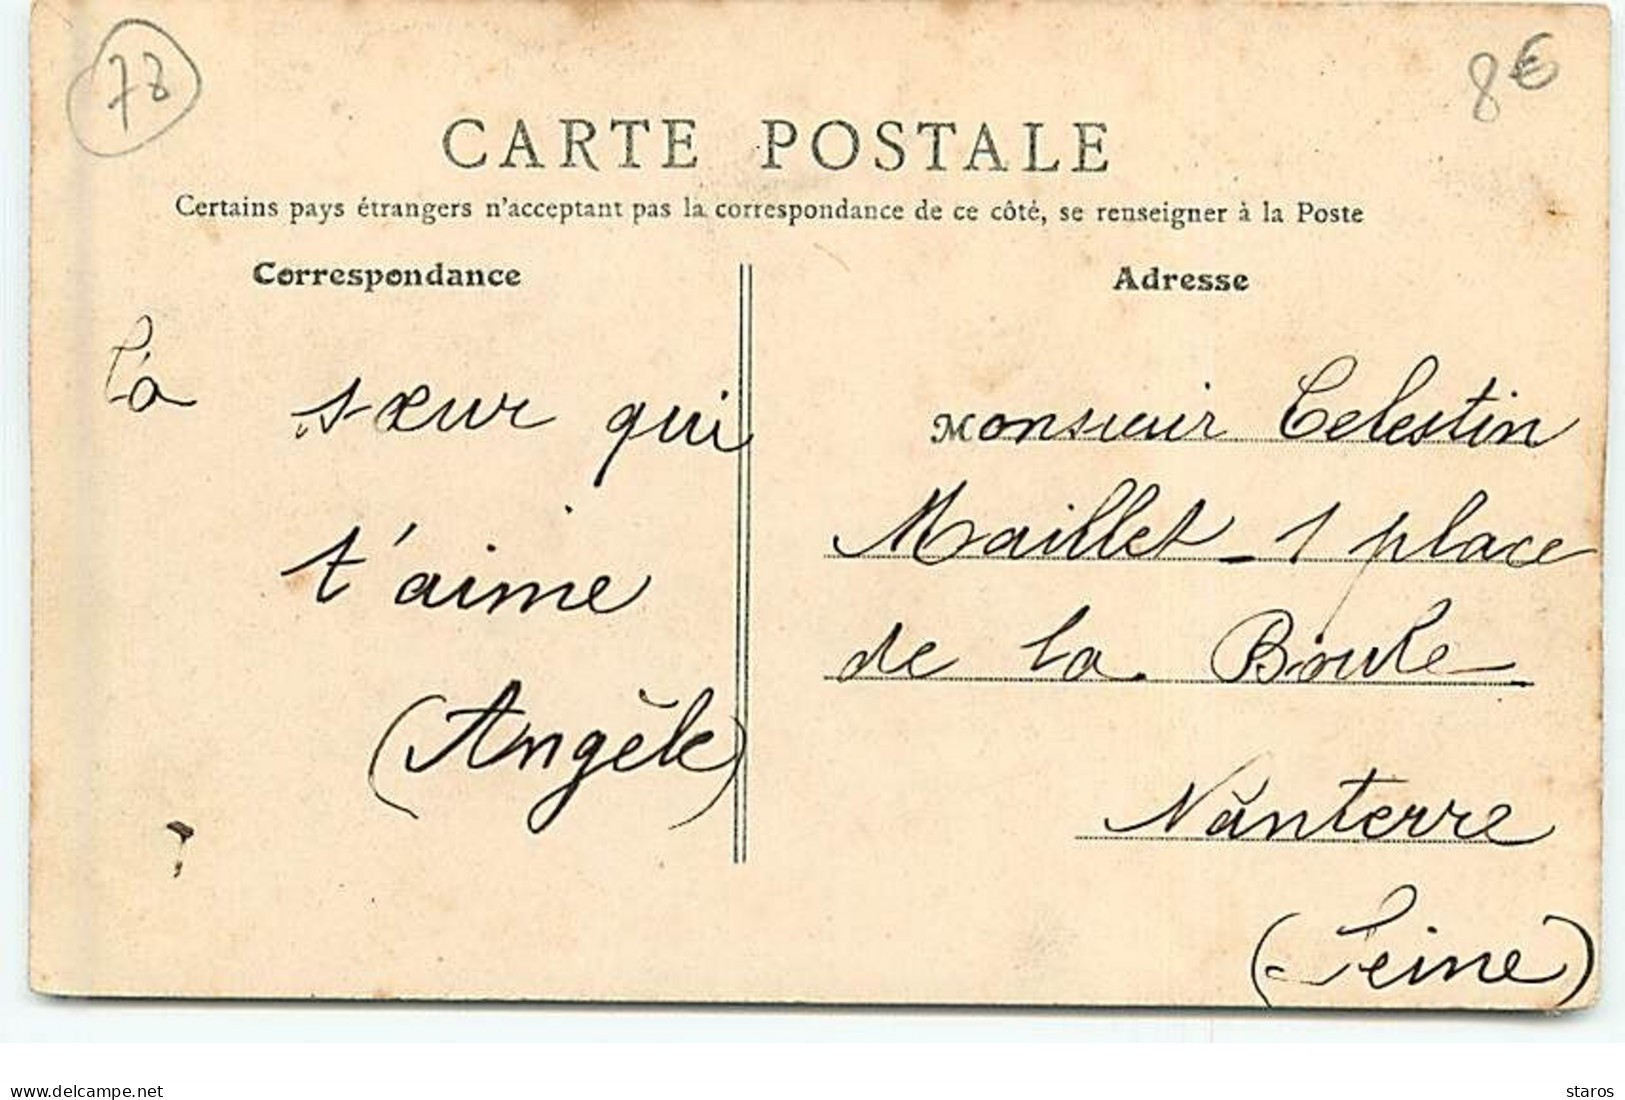 78
8€
CARTE POSTALE
Certains pays étrangers n'acceptant pas la correspondance de ce côté, se renseigner à la Poste
Correspondance
Ta sœur qui
t'aime
(Angèle)
Adresse
Monsieur Celestin
Maillet - 1 place
de la Boule
Nanterre
(Seine)
www.delcampe.net
staros